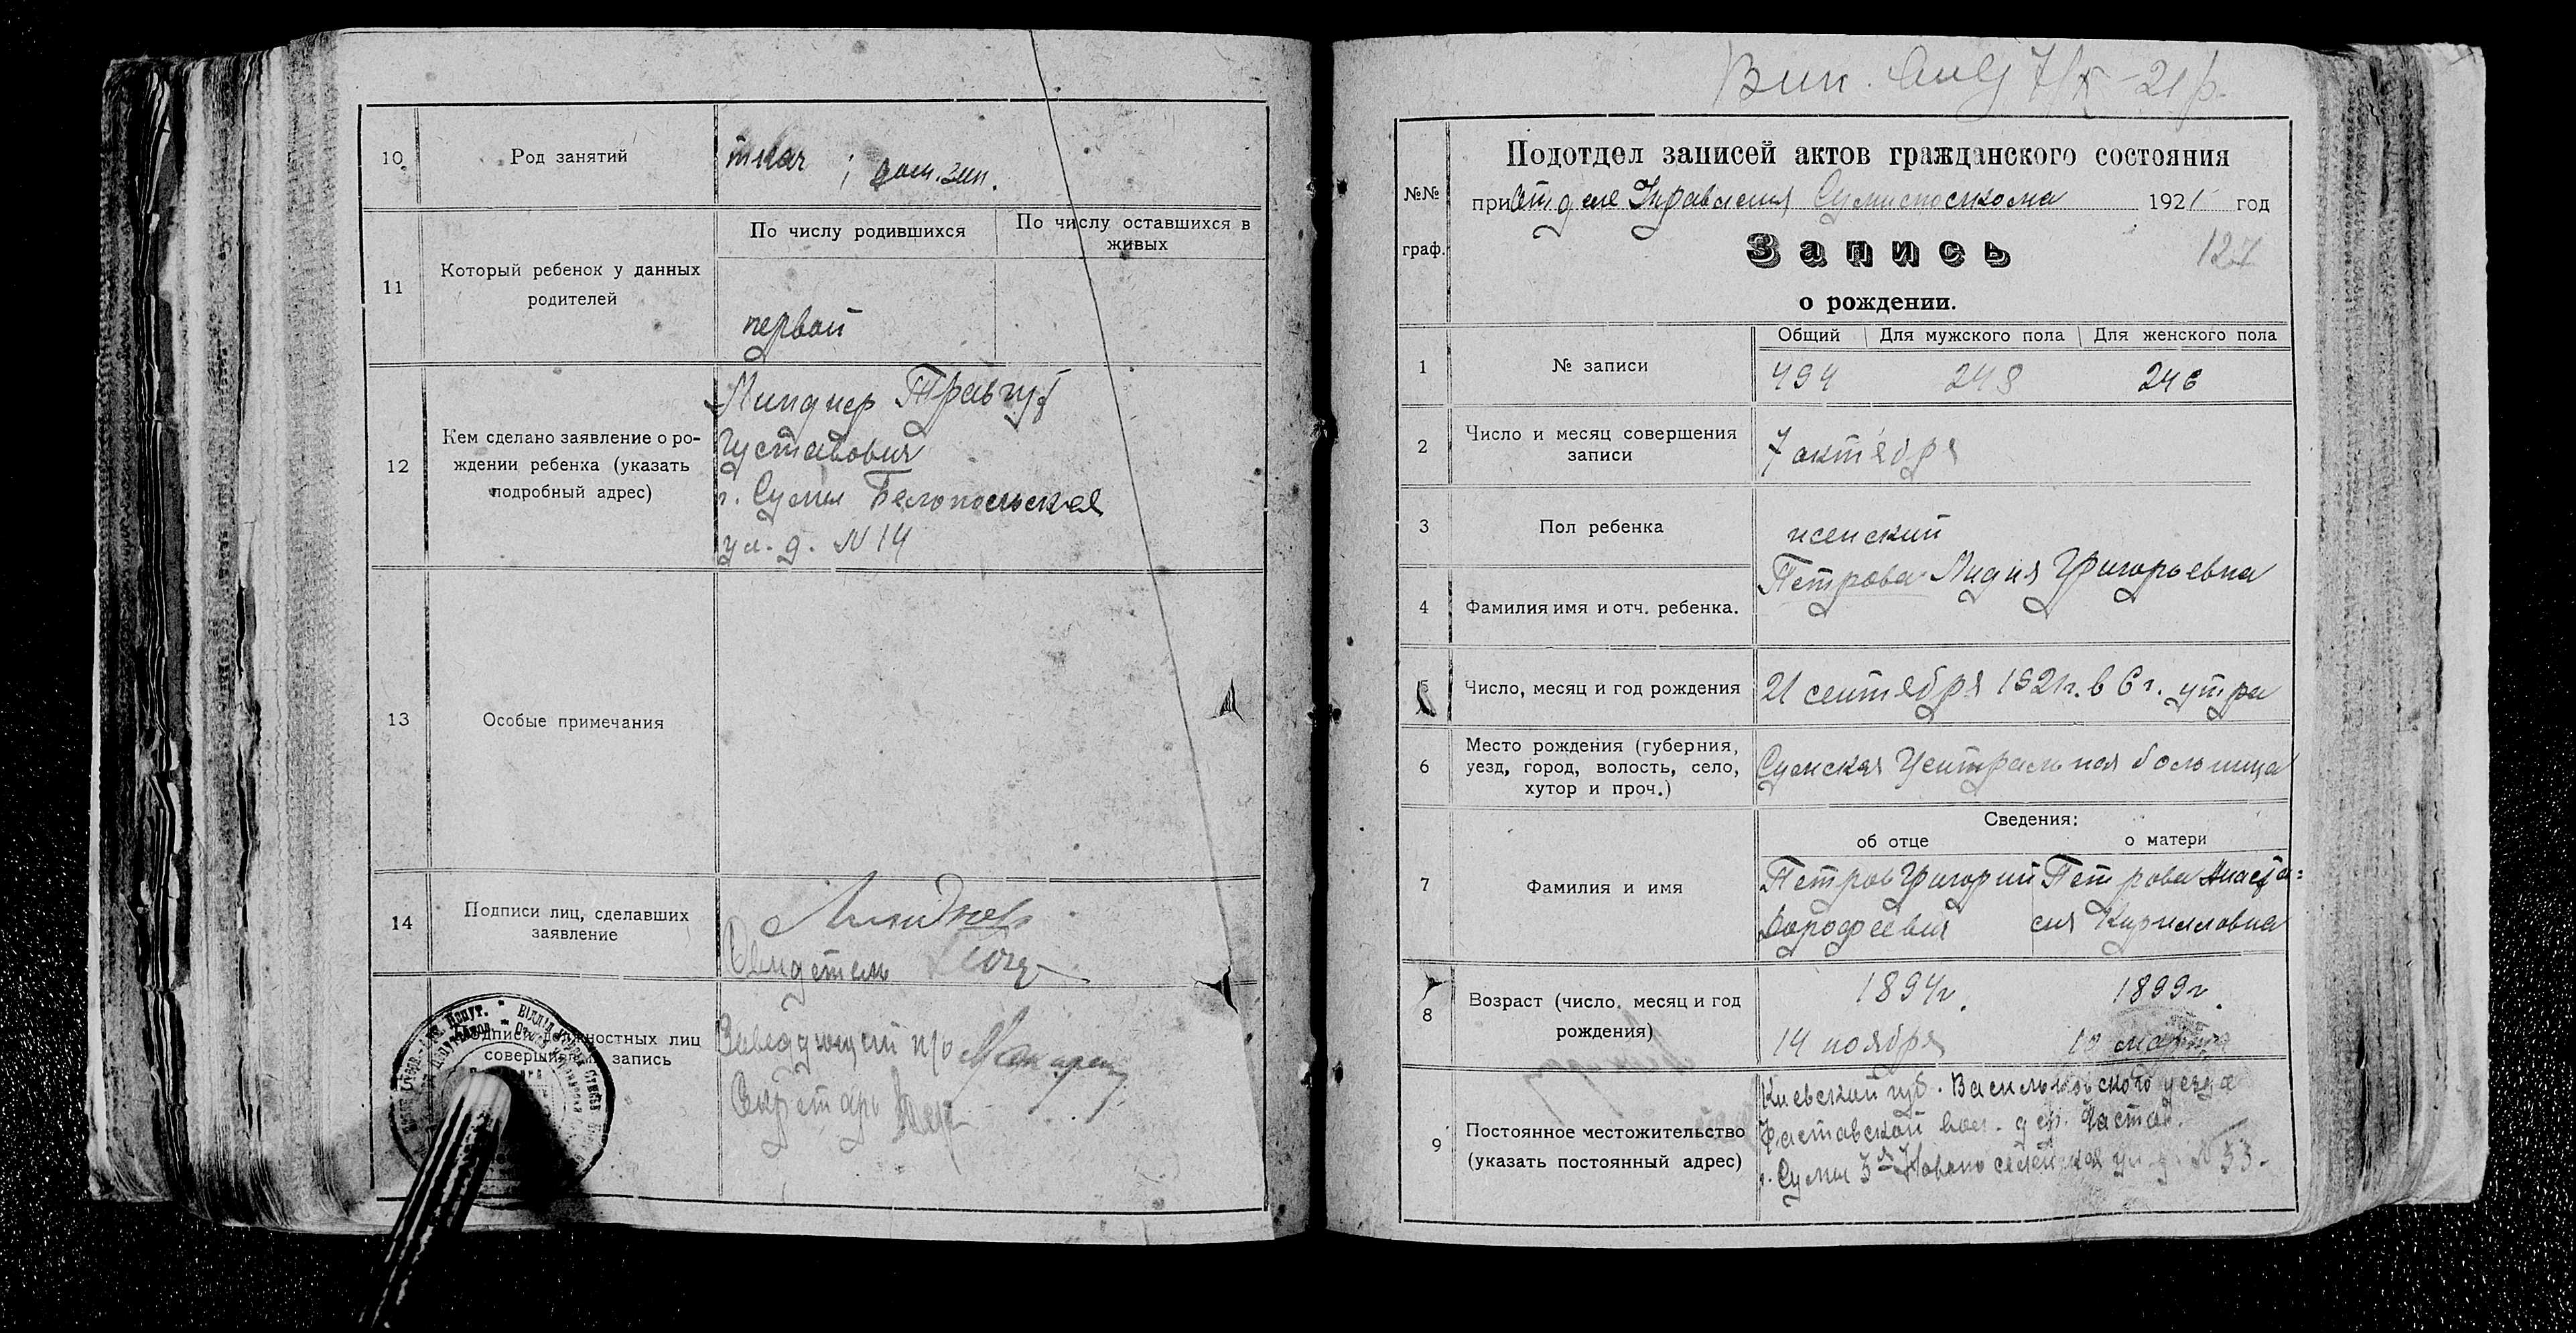 10
Род занятий
ткач ; дом. зан.
11
Который ребенок у данных
родителей
По числу родившихся
По числу оставшихся в
живых
первой
12
Кем сделано заявление о ро-
ждении ребенка (указать
подробный адрес)
Линднер Травгут
Густавович
г. Сумы Белопольская
ул. д. № 14
13
Особые примечания
14
Подписи лиц, сделавших
заявление
Линднер
Свидетель
Подписи должностных лиц
совершивших запись
Заведующий п/о
Секретарь
Вип. 7/X-21р.
№№
граф.
Подотдел записей актов гражданского состояния
при Отделе Управления 1921 год
127
Запись
о рождении.
1
№ записи
Общий
Для мужского пола
Для женского пола
494
248
246
2
Число и месяц совершения
записи
7 октября
3
Пол ребенка
женский
4
Фамилия имя и отч. ребенка.
Петрова Лидия Григорьевна
5
Число, месяц и год рождения
21 сентября 1921г. в 6 г. утра
6
Место рождения (губерния,
уезд, город, волость, село,
хутор и проч.)
Сумская Центральная больница
Сведения:
об отце
о матери
7
Фамилия и имя
Петров Григорий
Дорофеевич
Петрова Анаста=
сия Кирилловна
8
Возраст (число. месяц и год
рождения)
1894г.
14 ноября
1899г.
10 марта
9
Постоянное местожительство
(указать постоянный адрес)
Киевской губ. Васильковского уезда
Фастовской вол. дер. Фастов.
г. Сумы 3я Новоместенская ул. д. № 33.